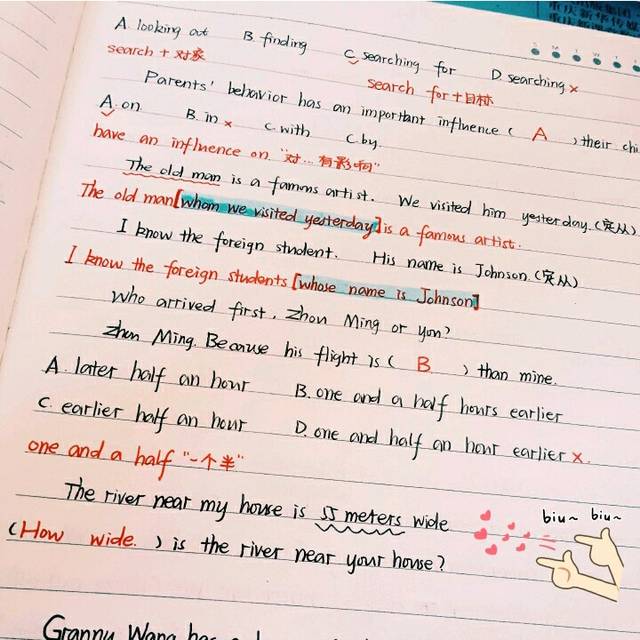 A. looking at B. finding C. searching for D. searching ×
search + 对象 search for + 目标
Parents' behavior has an important influence ( A ) their chi
A. on B. in × C. with C. by.
have an influence on "对...有影响"
The old man is a famous artist. We visited him yesterday. (定从)
The old man [whom we visited yesterday] is a famous artist.
I know the foreign student. His name is Johnson. (定从)
I know the foreign students [whose name is Johnson]
Who arrived first, Zhou Ming or you?
Zhou Ming. Because his flight is ( B ) than mine.
A. later half an hour B. one and a half hours earlier
C. earlier half an hour D. one and half an hour earlier ×.
one and a half "一个半"
The river near my house is 55 meters wide
biu~ biu~
(How wide. ) is the river near your house?
Granny Wang has a